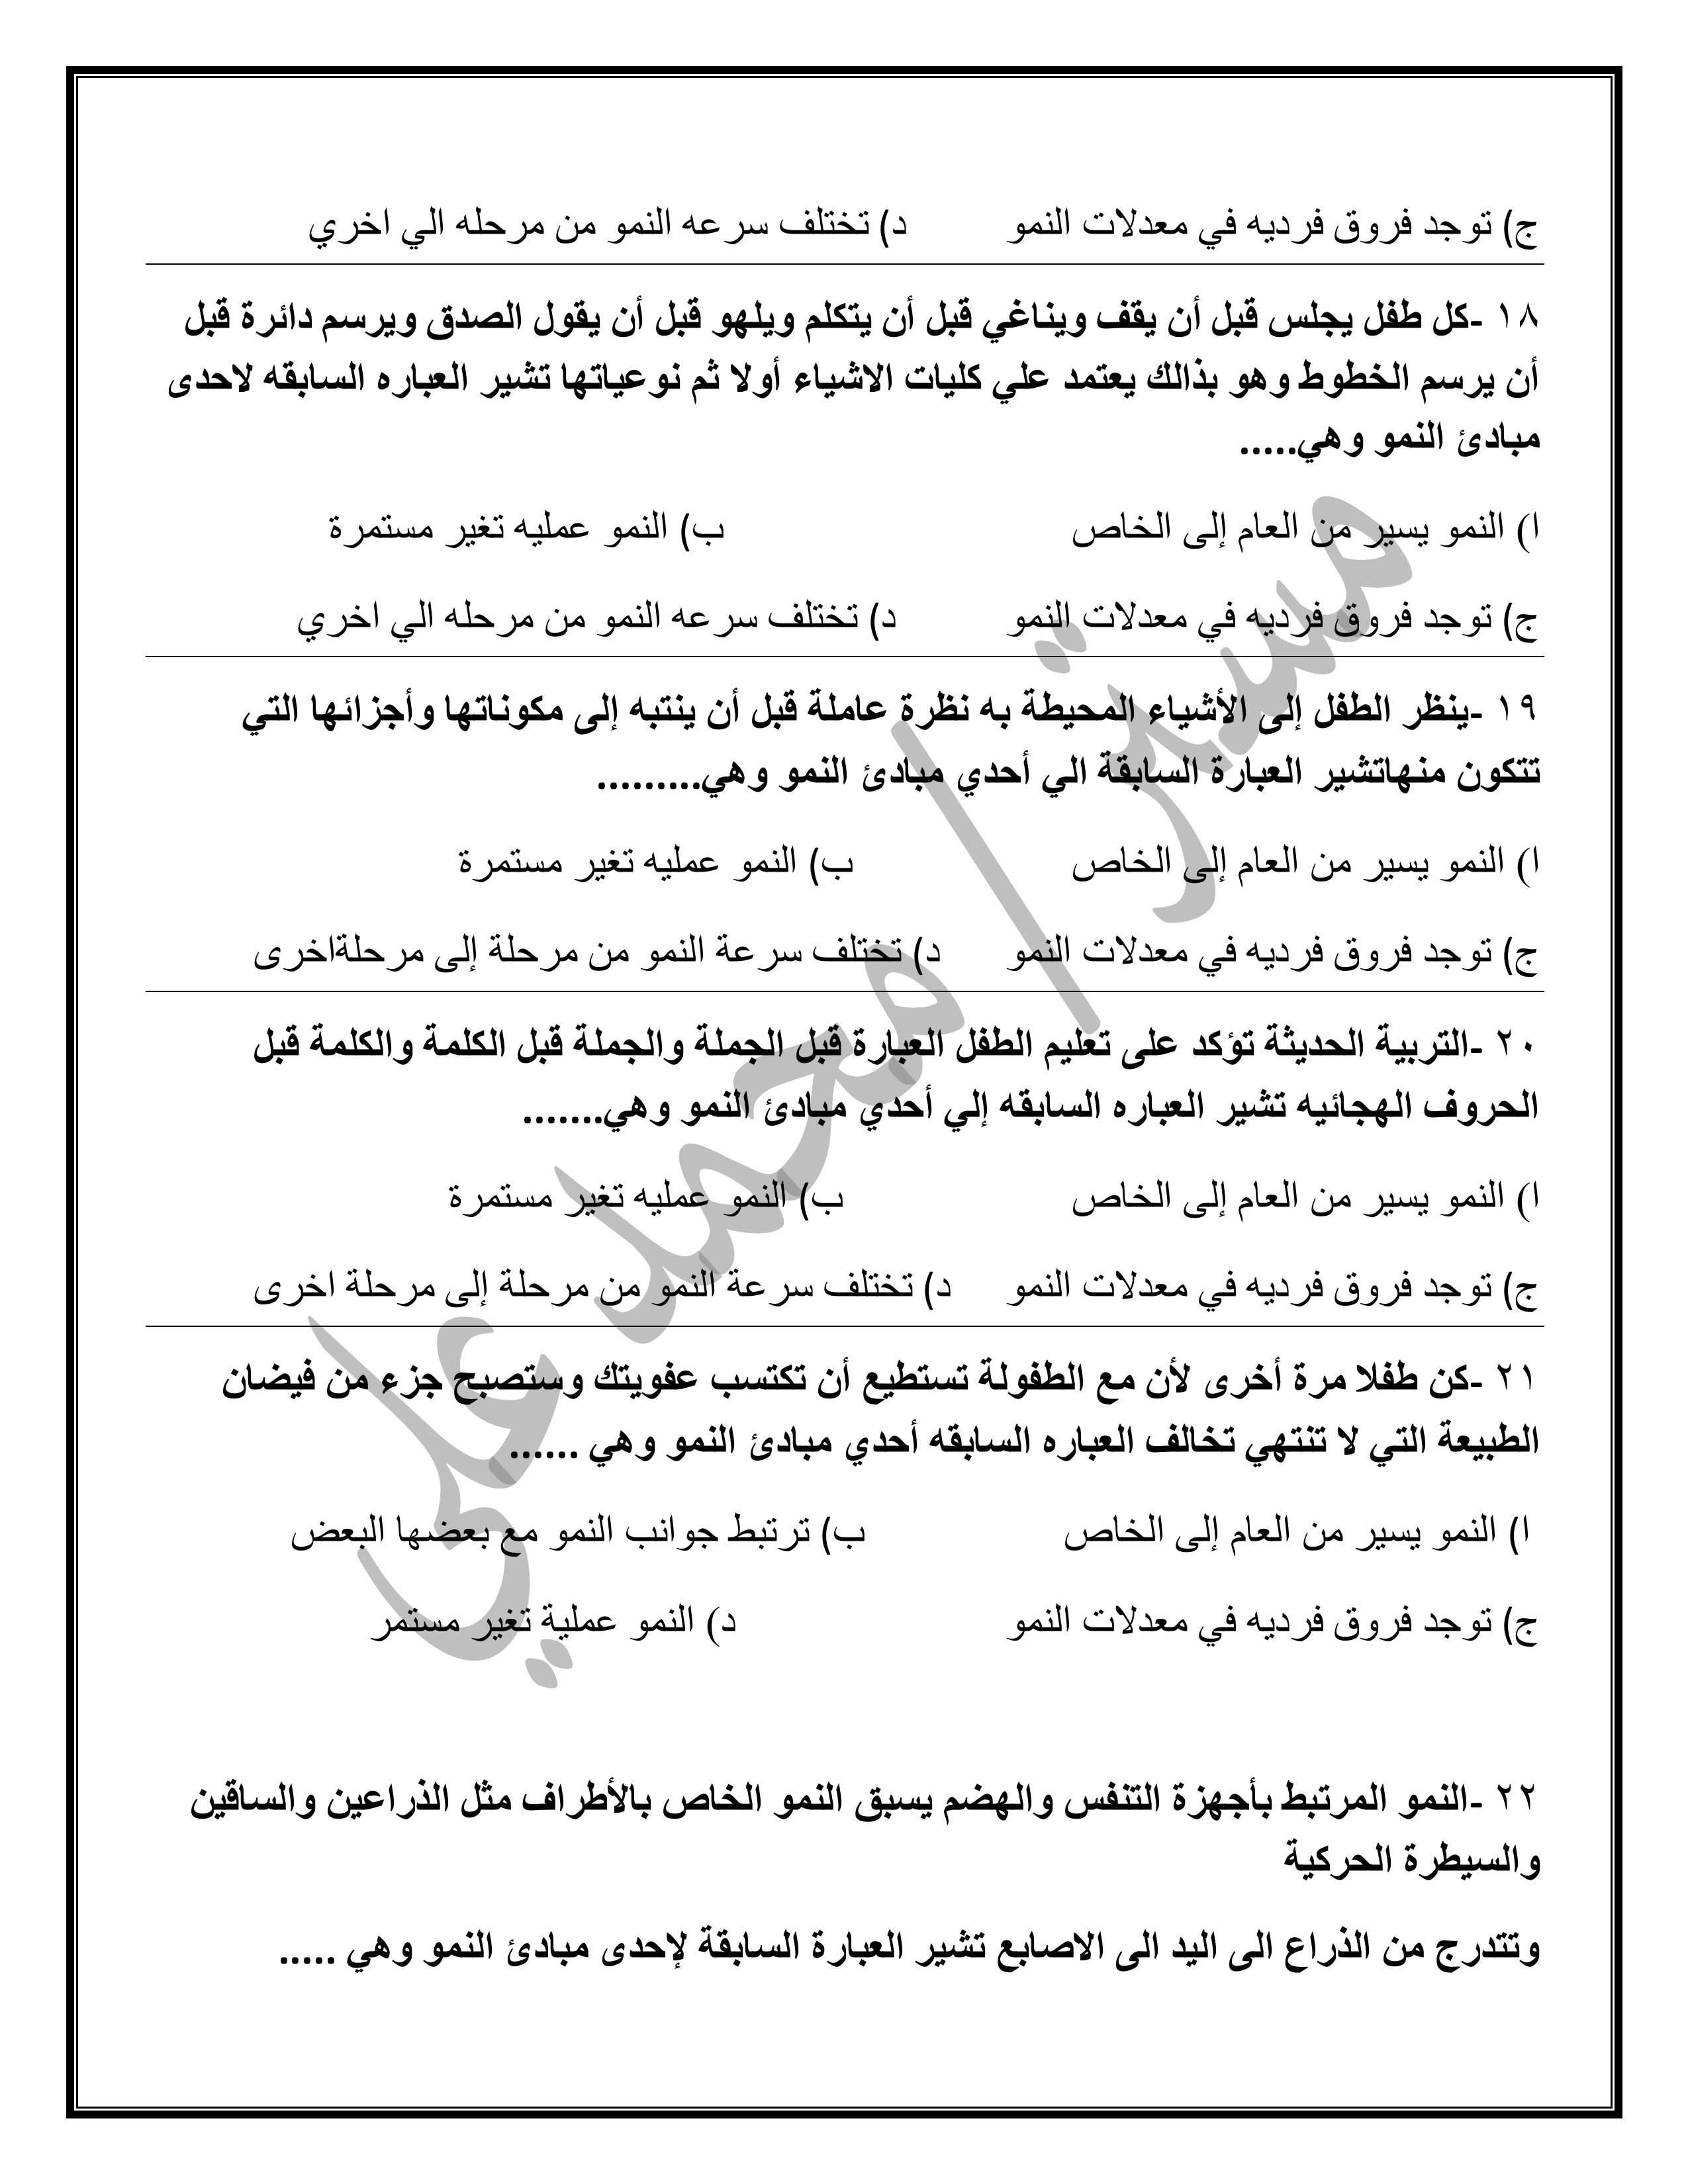 ج) توجد فروق فرديه في معدلات النمو د) تختلف سرعه النمو من مرحله الي اخري
١٨ -كل طفل يجلس قبل أن يقف ويناغي قبل أن يتكلم ويلهو قبل أن يقول الصدق ويرسم دائرة قبل
أن يرسم الخطوط وهو بذالك يعتمد علي كليات الاشياء أولا ثم نوعياتها تشير العباره السابقه لاحدى
مبادئ النمو وهي.....
ا) النمو يسير من العام إلى الخاص ب) النمو عمليه تغير مستمرة
ج) توجد فروق فرديه في معدلات النمو د) تختلف سرعه النمو من مرحله الي اخري
١٩ -ينظر الطفل إلى الأشياء المحيطة به نظرة عاملة قبل أن ينتبه إلى مكوناتها وأجزائها التي
تتكون منهاتشير العبارة السابقة الي أحدي مبادئ النمو وهي.........
ا) النمو يسير من العام إلى الخاص ب) النمو عمليه تغير مستمرة
ج) توجد فروق فرديه في معدلات النمو د) تختلف سرعة النمو من مرحلة إلى مرحلةاخرى
٢٠ -التربية الحديثة تؤكد على تعليم الطفل العبارة قبل الجملة والجملة قبل الكلمة والكلمة قبل
الحروف الهجائيه تشير العباره السابقه إلي أحدي مبادئ النمو وهي.......
ا) النمو يسير من العام إلى الخاص ب) النمو عمليه تغير مستمرة
ج) توجد فروق فرديه في معدلات النمو د) تختلف سرعة النمو من مرحلة إلى مرحلة اخرى
٢١ -كن طفلا مرة أخرى لأن مع الطفولة تستطيع أن تكتسب عفويتك وستصبح جزء من فيضان
الطبيعة التي لا تنتهي تخالف العباره السابقه أحدي مبادئ النمو وهي ......
ا) النمو يسير من العام إلى الخاص ب) ترتبط جوانب النمو مع بعضها البعض
ج) توجد فروق فرديه في معدلات النمو د) النمو عملية تغير مستمر
٢٢ -النمو المرتبط بأجهزة التنفس والهضم يسبق النمو الخاص بالأطراف مثل الذراعين والساقين
والسيطرة الحركية
وتتدرج من الذراع الى اليد الى الاصابع تشير العبارة السابقة لإحدى مبادئ النمو وهي .....
مستر/محمد علي